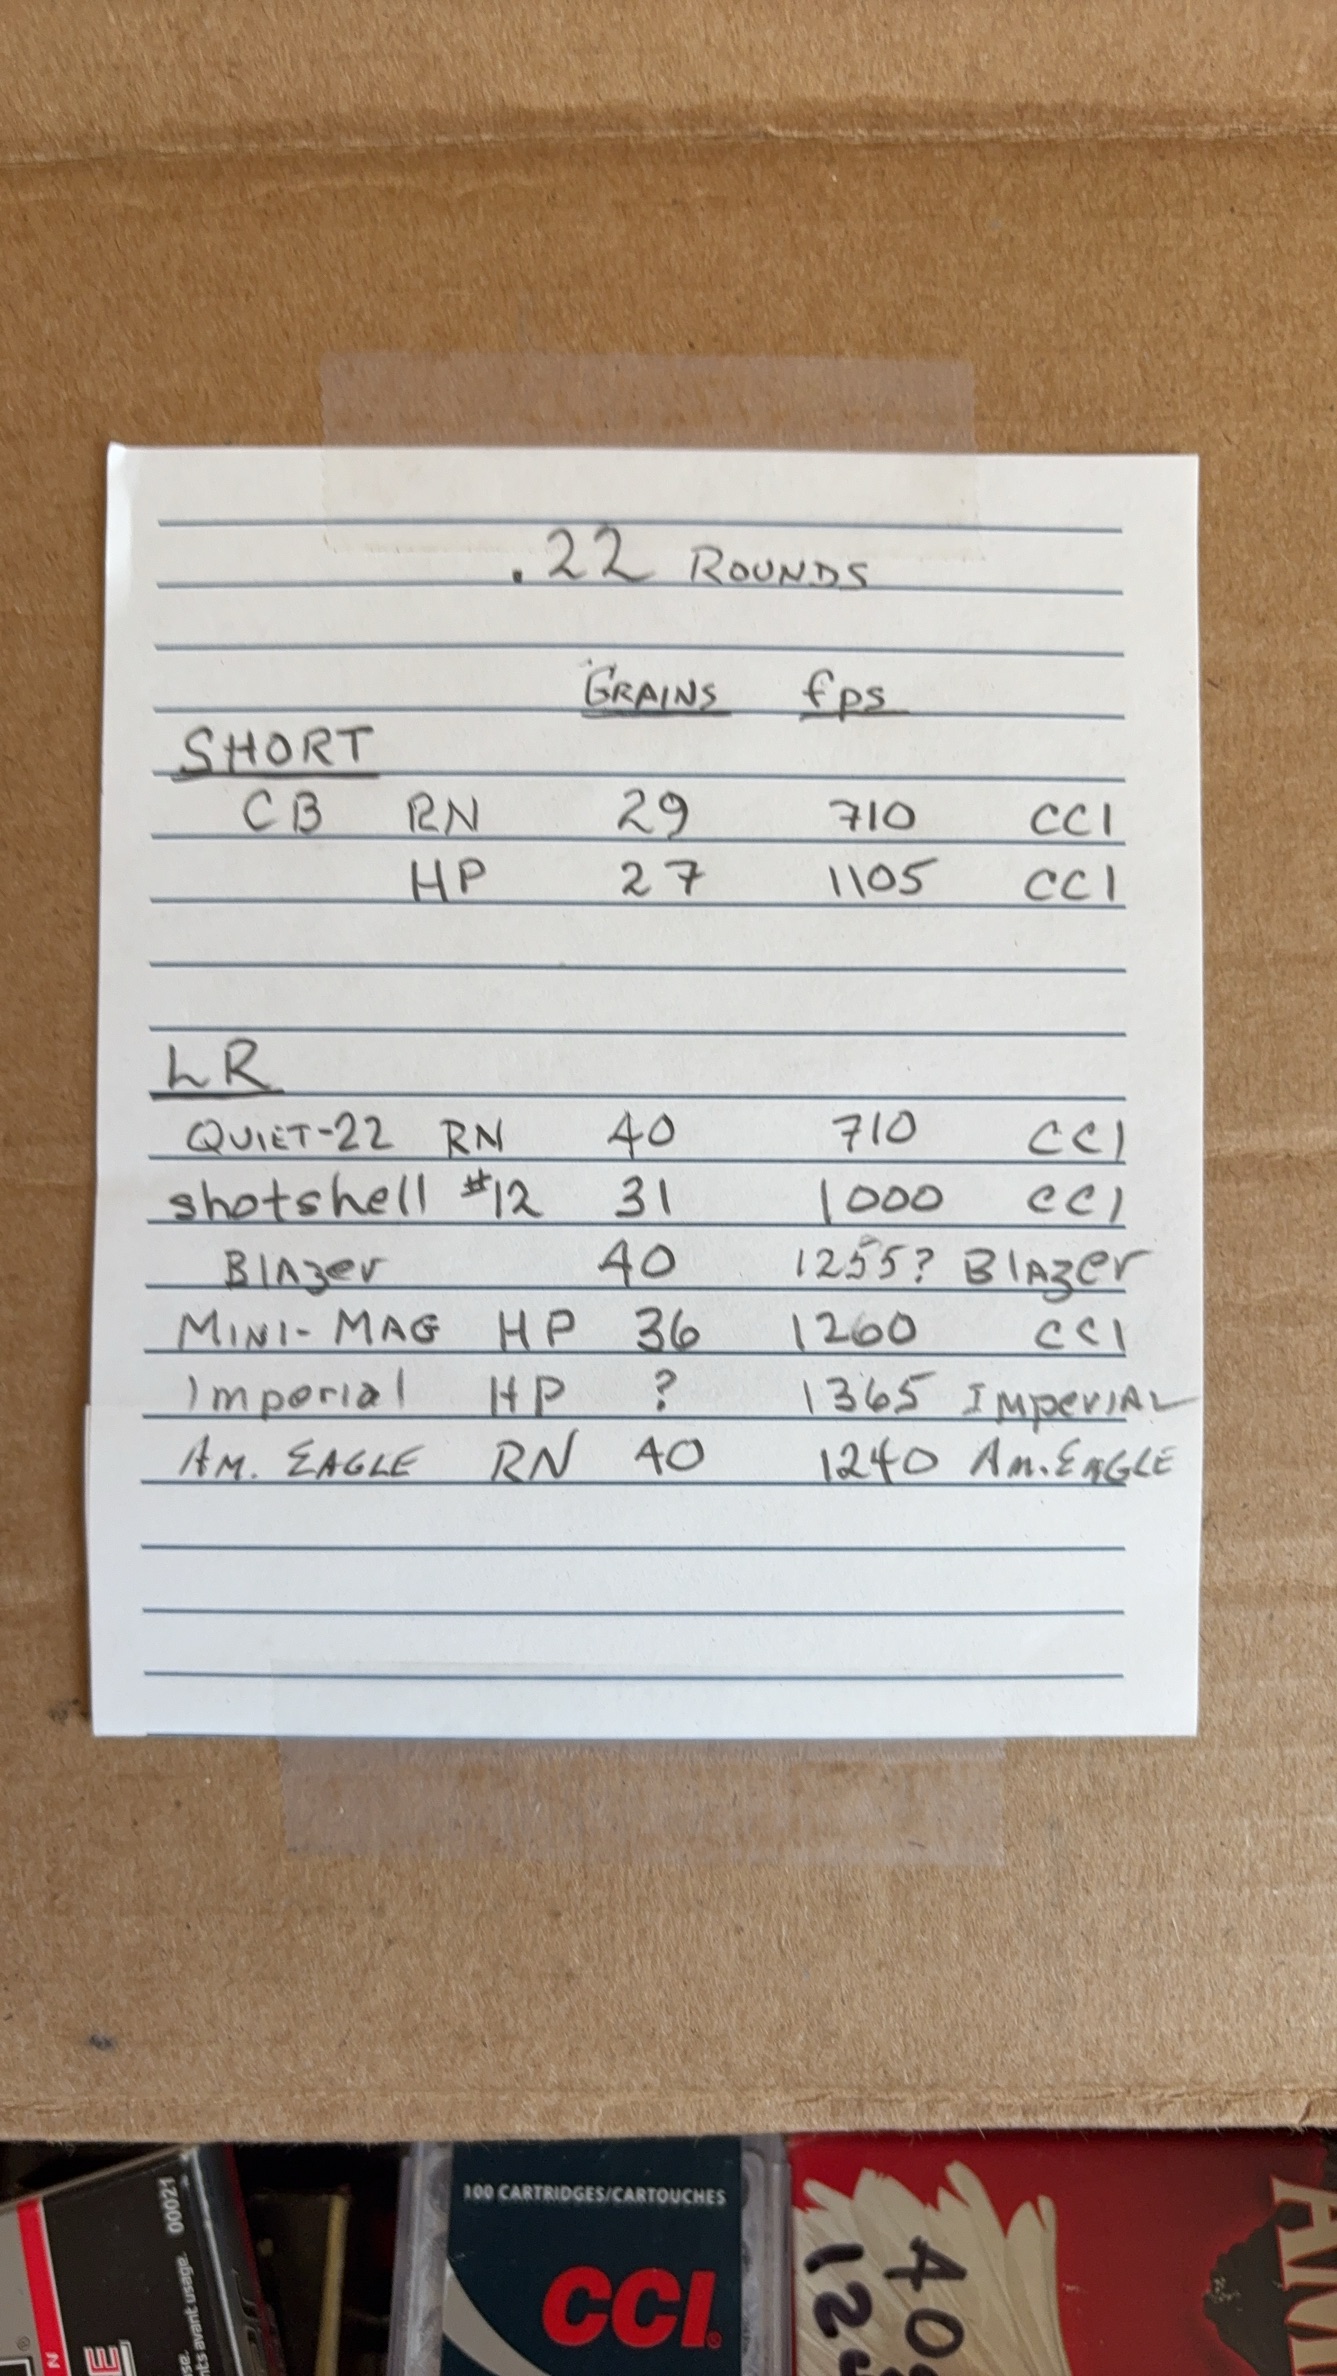 .22 ROUNDS
GRAINS fps
SHORT
CB RN 29 710 CCI
HP 27 1105 CCI
LR
QUIET-22 RN 40 710 CCI
shotshell #12 31 1000 CCI
Blazer 40 1255? Blazer
MINI-MAG HP 36 1260 CCI
Imperial HP ? 1365 IMPERIAL
AM. EAGLE RN 40 1240 AM. EAGLE
00021
nts avant usage.
100 CARTRIDGES/CARTOUCHES
CCI